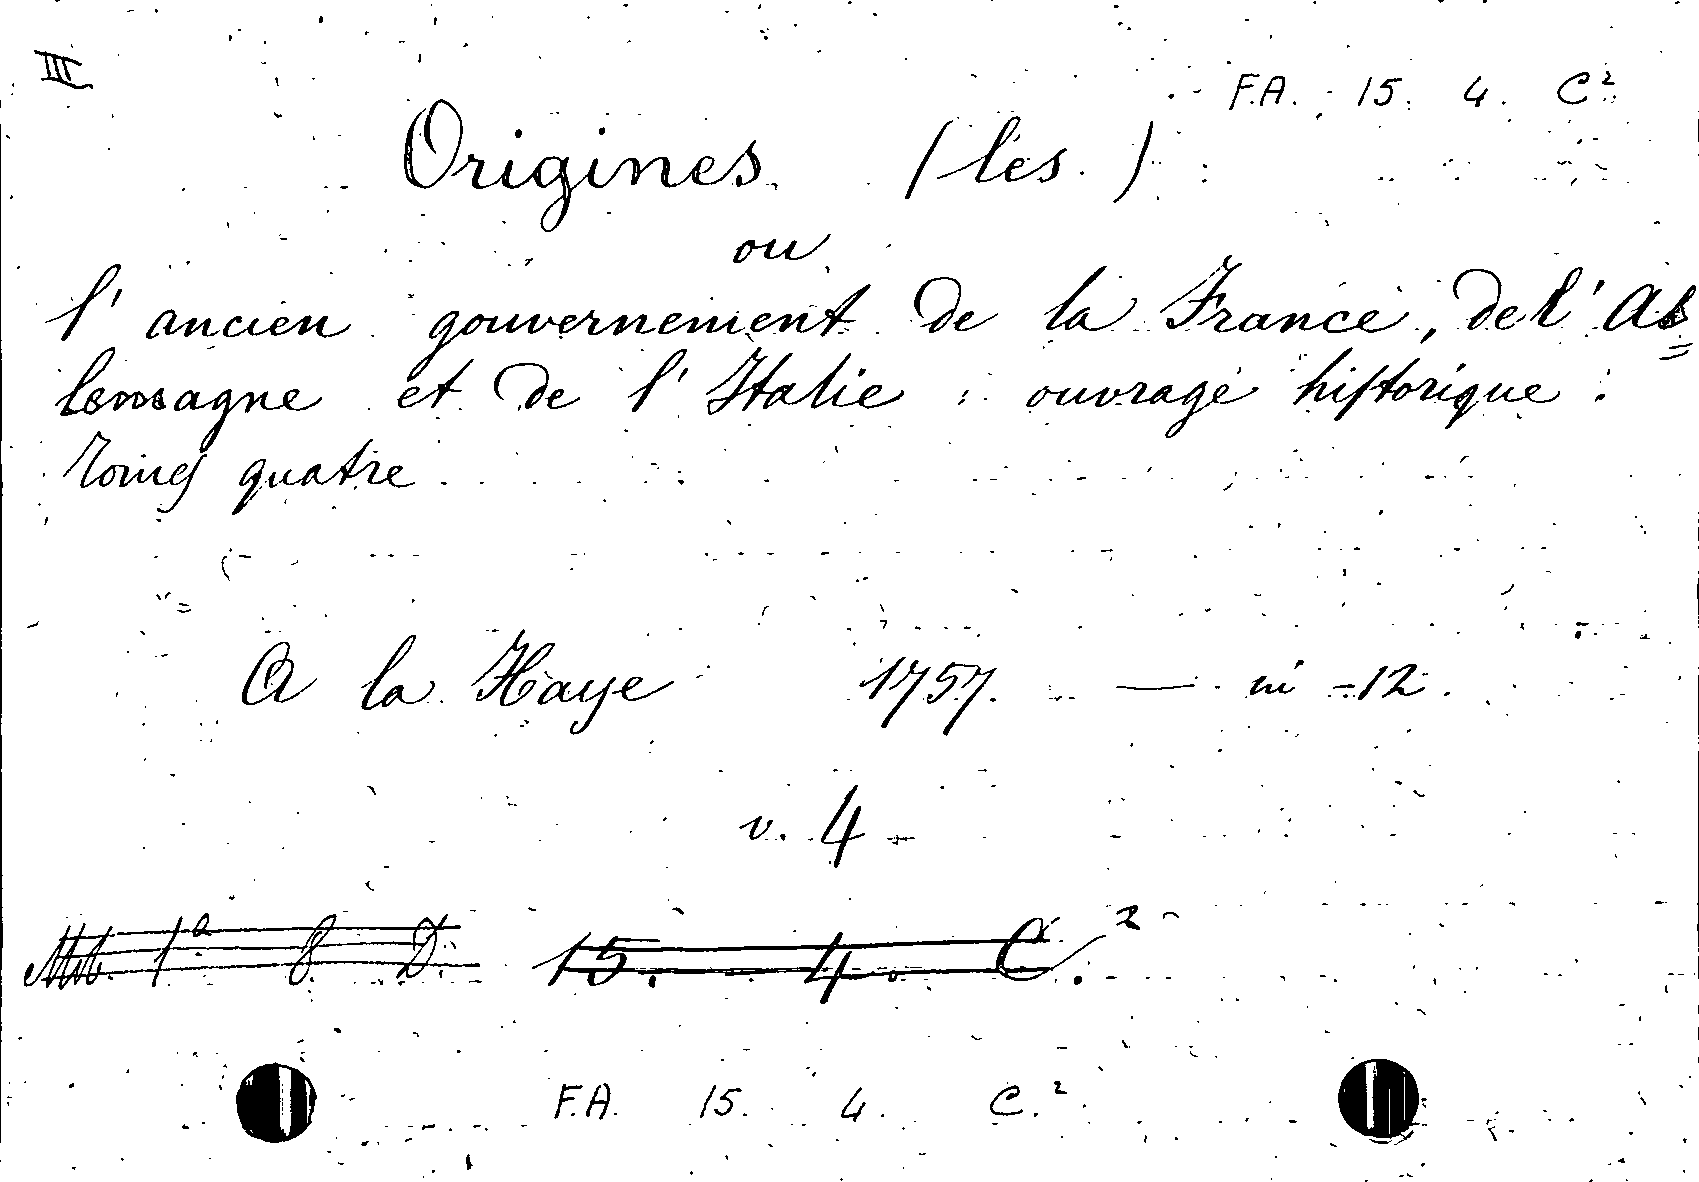 III
F.A. 15. 4. C²
Origines (les.)
ou
l'ancien gouvernement de la France, de l'Al=
lemagne et de l'Italie : ouvrage historique :
Tomes quatre
A la Haye 1757. — in -12.
v. 4
1ª 8 D. 15. 4. C.²
F.A. 15. 4. C.²